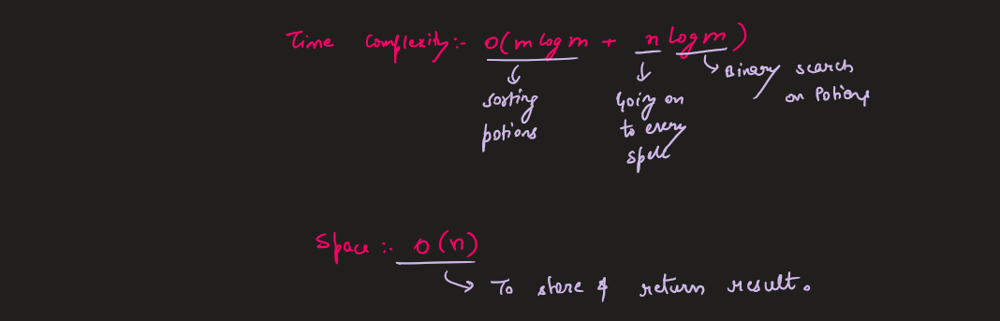 Time Complexity:- O(m log m + n log m)
sorting
potions
Going on
to every
spell
Binary search
on Potions
Space:- O(n)
To store & return result.